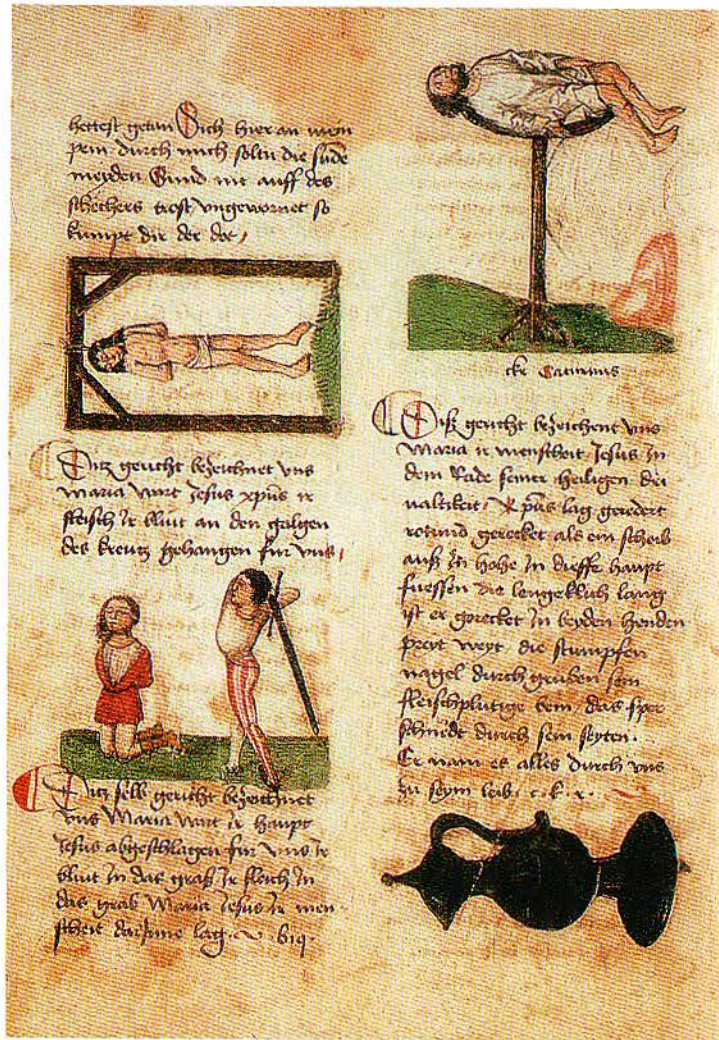 hettest getan Sich hier an mein
pein durch mich soltu die sunde
meyden Vnnd nit auff des
schechers trost vngewarnet so
kumpt dir der dot
Ditz gericht bezeichnet vns
Maria wart Jesus xpūs ir
fleisch Ir blüt an den galgen
des kreutz gehangen für vns
Ditz selb gericht bezeichnet
vns Maria wart Ir haupt
Jesus abgeschlagen für vns Ir
blüt In das graß Ir fleich In
das grab Maria Jesus Ir men
scheit darinne lag
Diß gericht bezeichent vns
Maria ir menscheit Jesus In
dem Rade seiner heiligen dri
ualtikeit xpūs lag geredert
rotund gerecket als ein scheib
auß In hohe In dieffe haupt
fuessen die lengeklich lang
ist er gerecket In beyden henden
preyt weyt die stumpfen
nagel durch gruben sein
fleischplutige bein das sper
schneidt durch sein seyten.
Er nam es alles durch vns
zu seym leib. c. k. x.